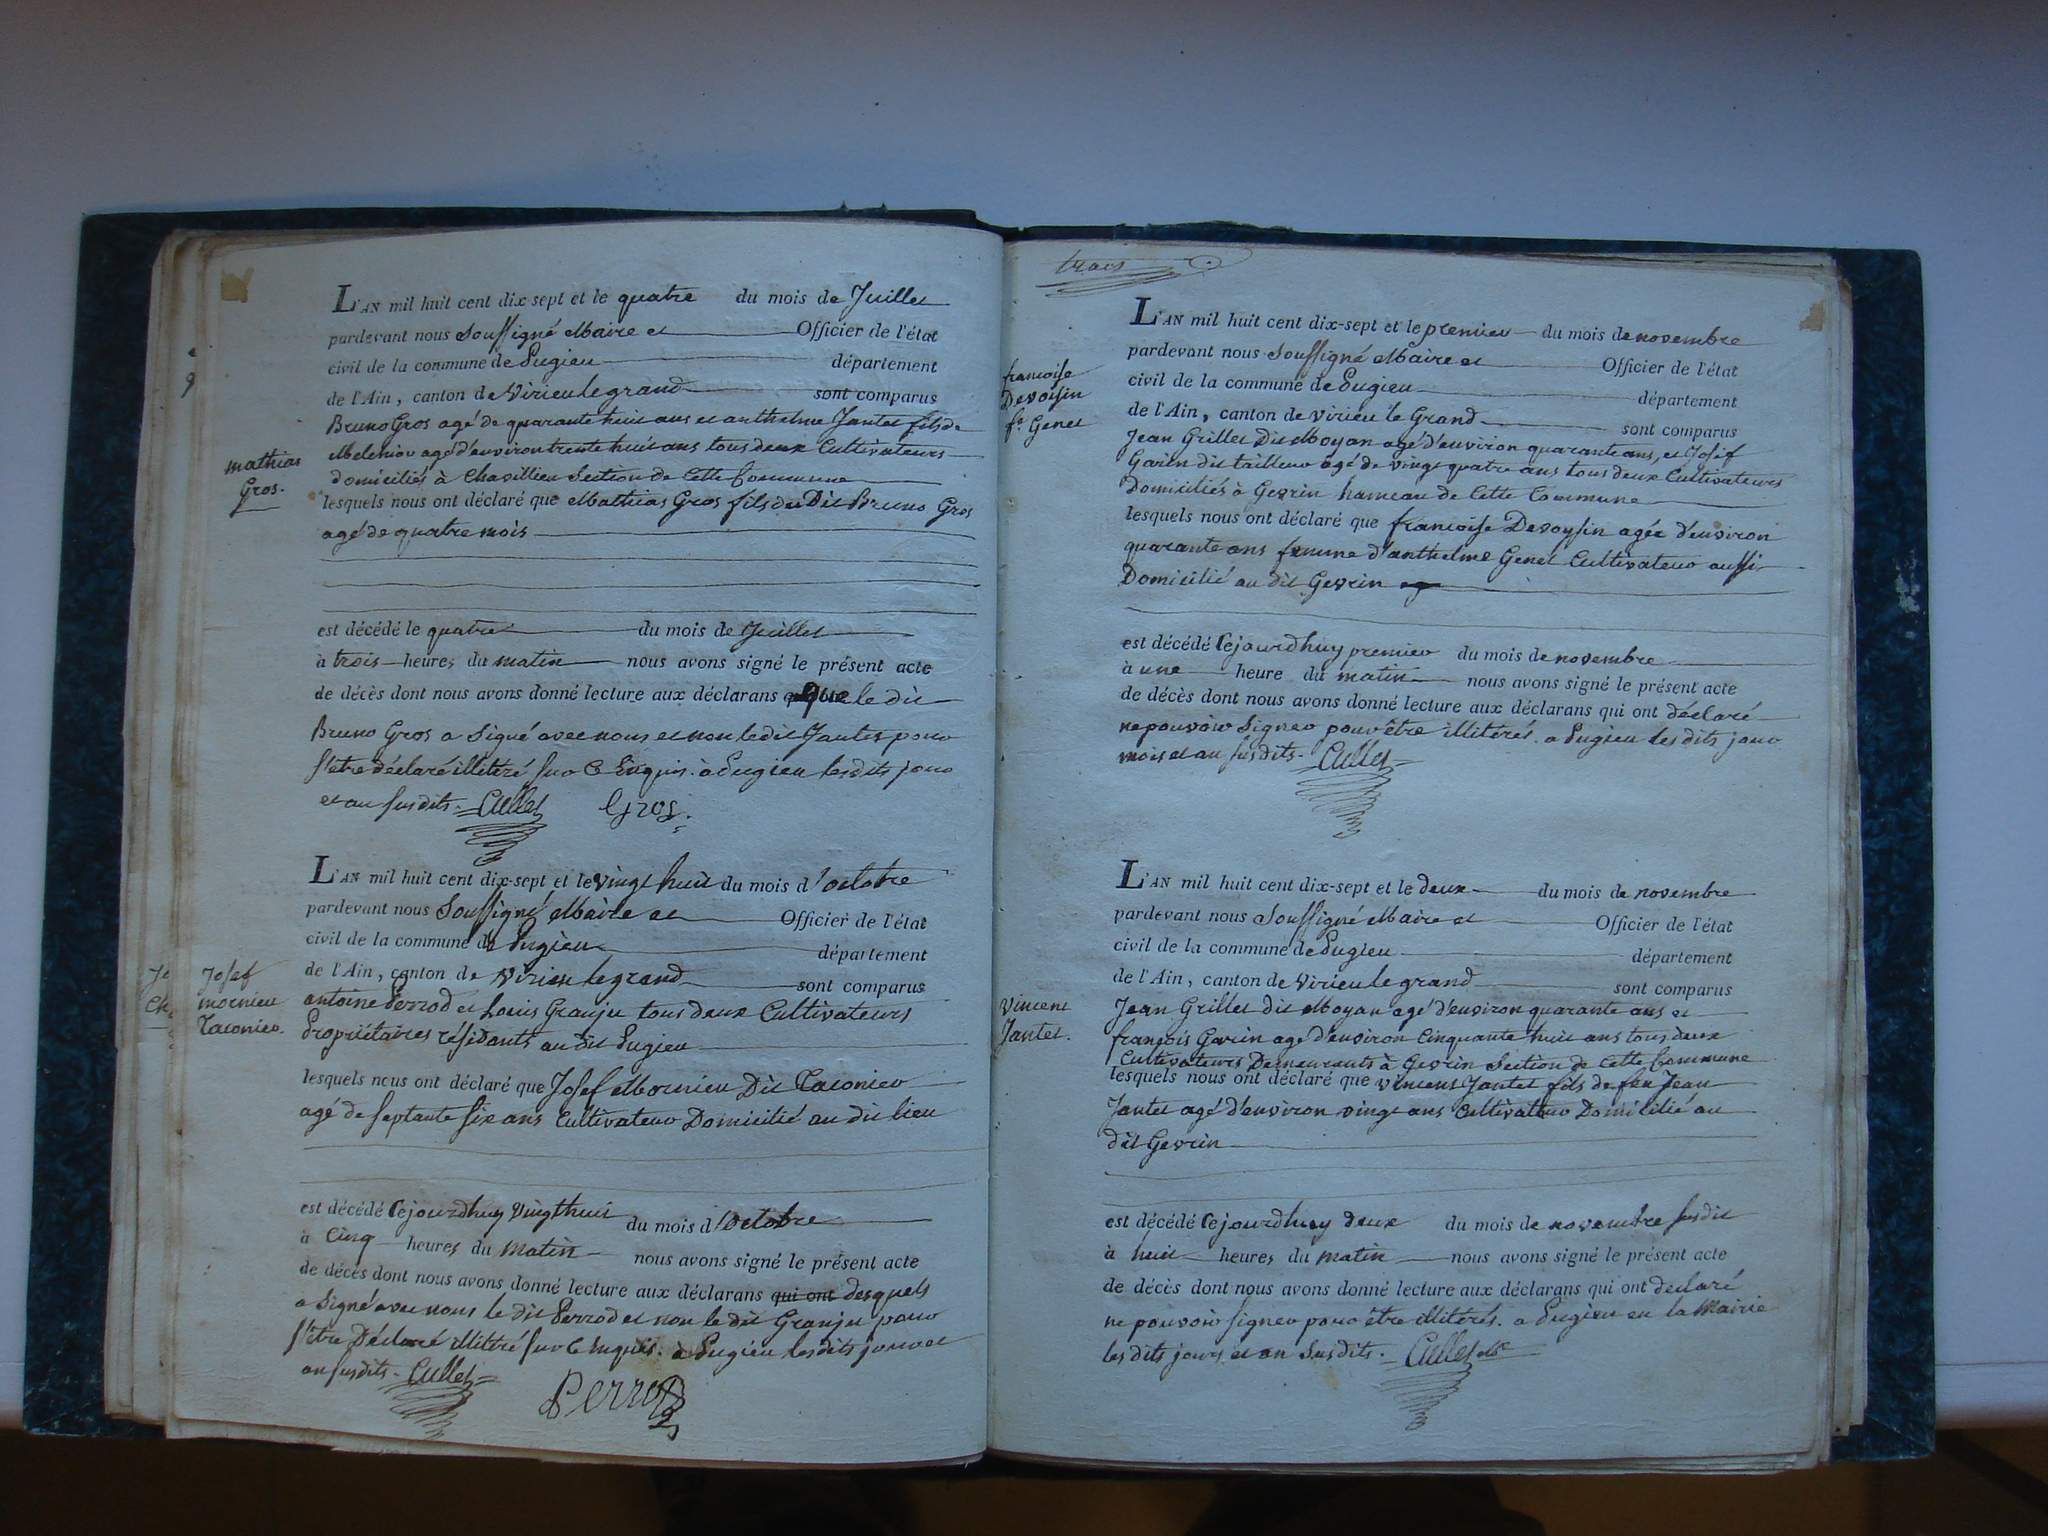 L'AN mil huit cent dix sept et le quatre du mois de Juillet
pardevant nous Soussigné Maire et Officier de l'état
civil de la commune de Pugieu département
de l'Ain, canton de Virieu le grand sont comparus
Bruno Gros agé de quarante huit ans et anthelme Jantet fils de
Melchior agé d'environ trente huit ans tous deux Cultivateurs
domiciliés à Chavillieu Section de Cette Commune
mathias
Gros.
lesquels nous ont déclaré que Mathias Gros fils du Dit Bruno Gros
agé de quatre mois
est décédé le quatre du mois de Juillet
à trois heures du matin nous avons signé le présent acte
de décès dont nous avons donné lecture aux déclarans que le dit
Bruno Gros a Signé avec nous et non le dit Jantet pour
s'être déclaré illitéré sur Ce Enquis. à Pugieu les dits jour
et an susdits. Cullet Gros.
L'AN mil huit cent dix-sept et le vingt huit du mois d'octobre
pardevant nous Soussigné Maire et Officier de l'état
civil de la commune de Pugieu département
de l'Ain, canton de Virieu le grand sont comparus
Josef
mornieu
Taconier.
antoine Perrod et Louis Granju tous deux Cultivateurs
Propriétaires résidants au dit Pugieu
lesquels nous ont déclaré que Josef Mornieu Dit Taconier
agé de septante six ans Cultivateur Domicilié au dit lieu
est décédé Cejourdhuy Vingthuit du mois d'octobre
à Cinq heures du Matin nous avons signé le présent acte
de décès dont nous avons donné lecture aux déclarans qui ont desquels
a Signé avec nous le dit Perrod et non le dit Granju pour
s'être Déclaré illitéré sur Ce Enquis. à Pugieu les dits jour et
an susdits. Cullet Perrod
trois
L'AN mil huit cent dix-sept et le premier du mois de novembre
pardevant nous Soussigné Maire et Officier de l'état
civil de la commune de Pugieu département
de l'Ain, canton de Virieu le Grand sont comparus
francoise
Devoisin
fe Genet
Jean Grillet Dit Moyan agé d'environ quarante ans, et Josef
Garin dit tailleur agé de vingt quatre ans tous deux Cultivateurs
Domiciliés à Gevrin hameau de Cette Commune
lesquels nous ont déclaré que francoise Devoysin agée d'environ
quarante ans femme d'anthelme Genet Cultivateur aussi
Domicilié au dit Gevrin
est décédé Cejourdhuy premier du mois de novembre
à une heure du matin nous avons signé le présent acte
de décès dont nous avons donné lecture aux déclarans qui ont déclaré
ne pouvoir Signer pour être illitérés. a Pugieu les dits jour
mois et an susdits. Cullet
L'AN mil huit cent dix-sept et le deux du mois de novembre
pardevant nous Soussigné Maire et Officier de l'état
civil de la commune de Pugieu département
de l'Ain, canton de Virieu le grand sont comparus
Vincent
Jantet.
Jean Grillet dit Moyan agé d'environ quarante ans et
françois Garin agé d'environ Cinquante huit ans tous deux
Cultivateurs Demeurants à Gevrin Section de Cette Commune
lesquels nous ont déclaré que Vincent Jantet fils de feu Jean
Jantet agé d'environ vingt ans Cultivateur Domicilié au
dit Gevrin
est décédé Cejourdhuy deux du mois de novembre susdit
à huit heures du matin nous avons signé le présent acte
de décès dont nous avons donné lecture aux déclarans qui ont declaré
ne pouvoir signer pour être illitérés. a Pugieu en la Mairie
les dits jours et an Susdits. Cullet